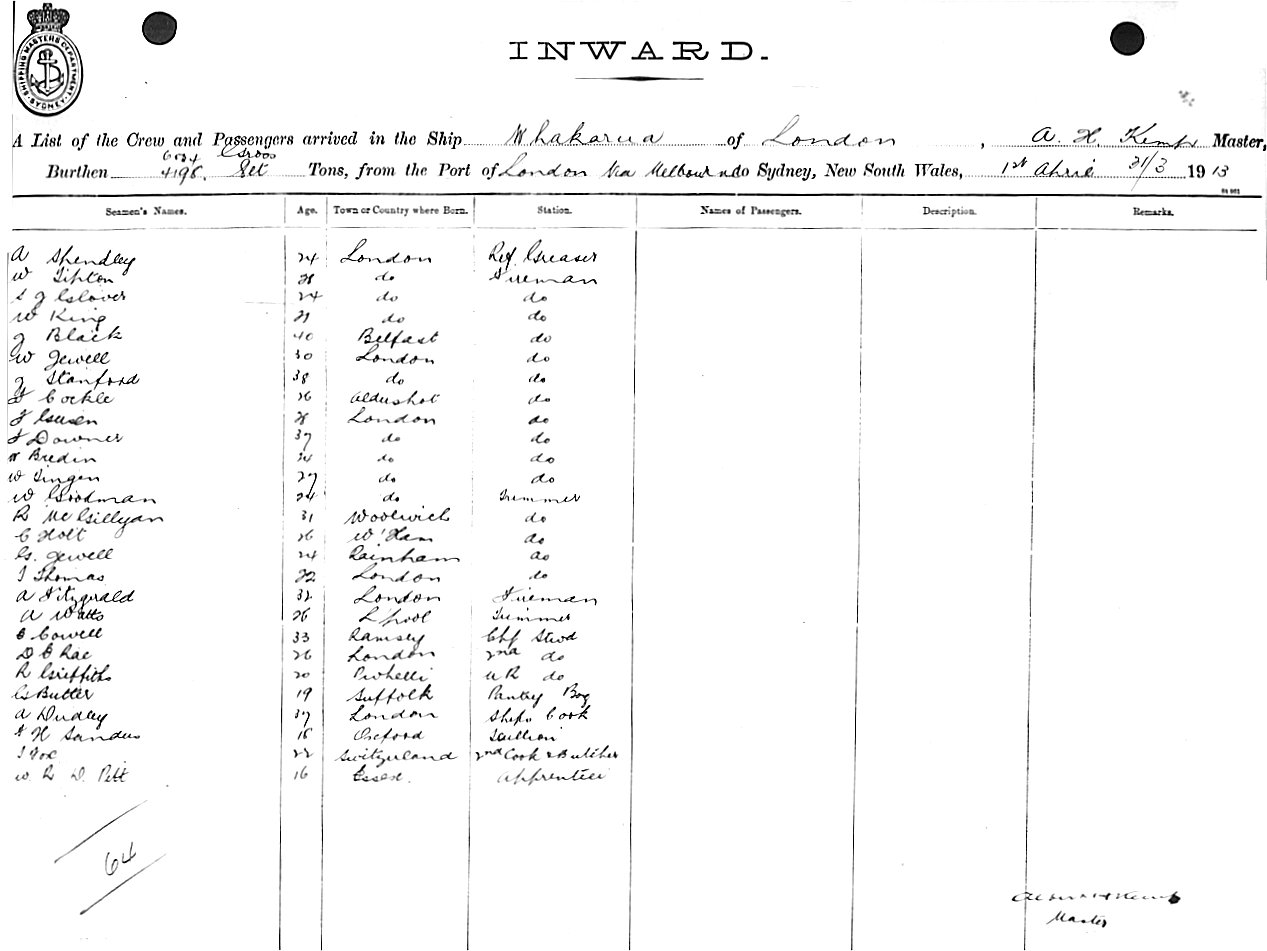 SHIPPING MASTERS DEPARTMENT SYDNEY
INWARD.
A List of the Crew and Passengers arrived in the Ship Whakarua of London, A. H. Kemp Master,
Gross
Burthen 4198. Tons, from the Port of London Via Melbourne to Sydney, New South Wales, 1st April 31/3 1913
Seamen's Names. Age. Town or Country where Born. Station. Names of Passengers. Description. Remarks.
A Spendley 24 London Ref Greaser
W Tipton 28 do Fireman
Glover 24 do do
W King do do
J Black 40 Belfast do
W Jewell 30 London do
J Stanford 38 do do
F Cockle 26 Aldershot do
F London do
F Downer 37 do do
W Bredin 24 do do
W Tingen 27 do do
W Goodman 24 do Trimmer
R McGillyan 31 Woolwich do
C Holt 26 W'Ham do
G. Jewell 24 Rainham do
J Thomas 22 London do
A Fitzgerald 32 London Fireman
A Watts 26 L'pool Trimmer
C Cowell 33 Ramsey Chf Stwd
D C Rae 26 London 2nd do
R Griffiths 20 Pwhelli do
G Butter 19 Suffolk Pantry Boy
A Dudley 37 London Ships Cook
F H Sanders 18 Oxford Scullion
22 Switzerland 2nd Cook & Butcher
W R D Pitt 16 Essex. Apprentice
64
Albert H Kemp
Master